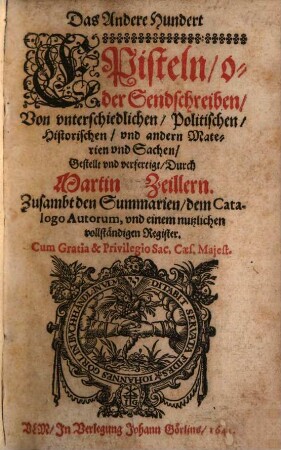 Das Andere Hundert
EPisteln/o-
der Sendschreiben/
Von vnterschiedlichen/ Politischen/
Historischen/ vnd andern Mate-
rien vnd Sachen/
Gestellt vnd verfertigt/ Durch
Martin Zeillern.
Zusambt den Summarien/dem Cata-
logo Autorum, vnd einem nutzlichen
vollständigen Register.
Cum Gratia & Privilegio Sac. Cæs. Majest.
DITABIT SERVATA FIDES
IOHANNES GÖRL IN BVCHHANDLVNG VLM
VLM/ In Verlegung Johann Görlins/